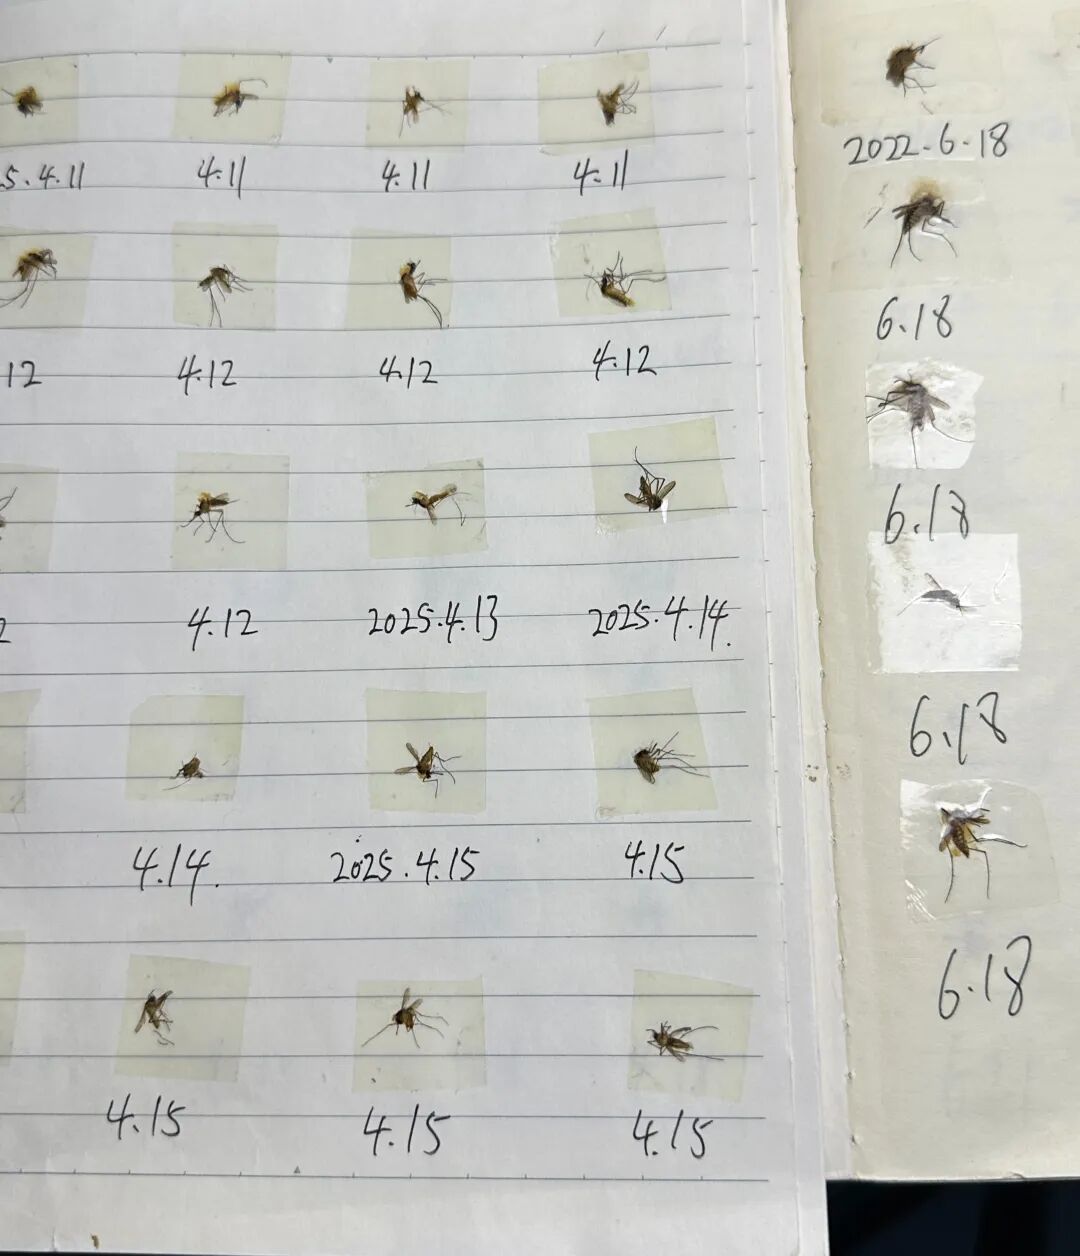 5.4.11 4.11 4.11 4.11
12 4.12 4.12 4.12
2 4.12 2025.4.13 2025.4.14.
4.14. 2025.4.15 4.15
4.15 4.15 4.15
2022.6.18
6.18
6.18
6.18
6.18